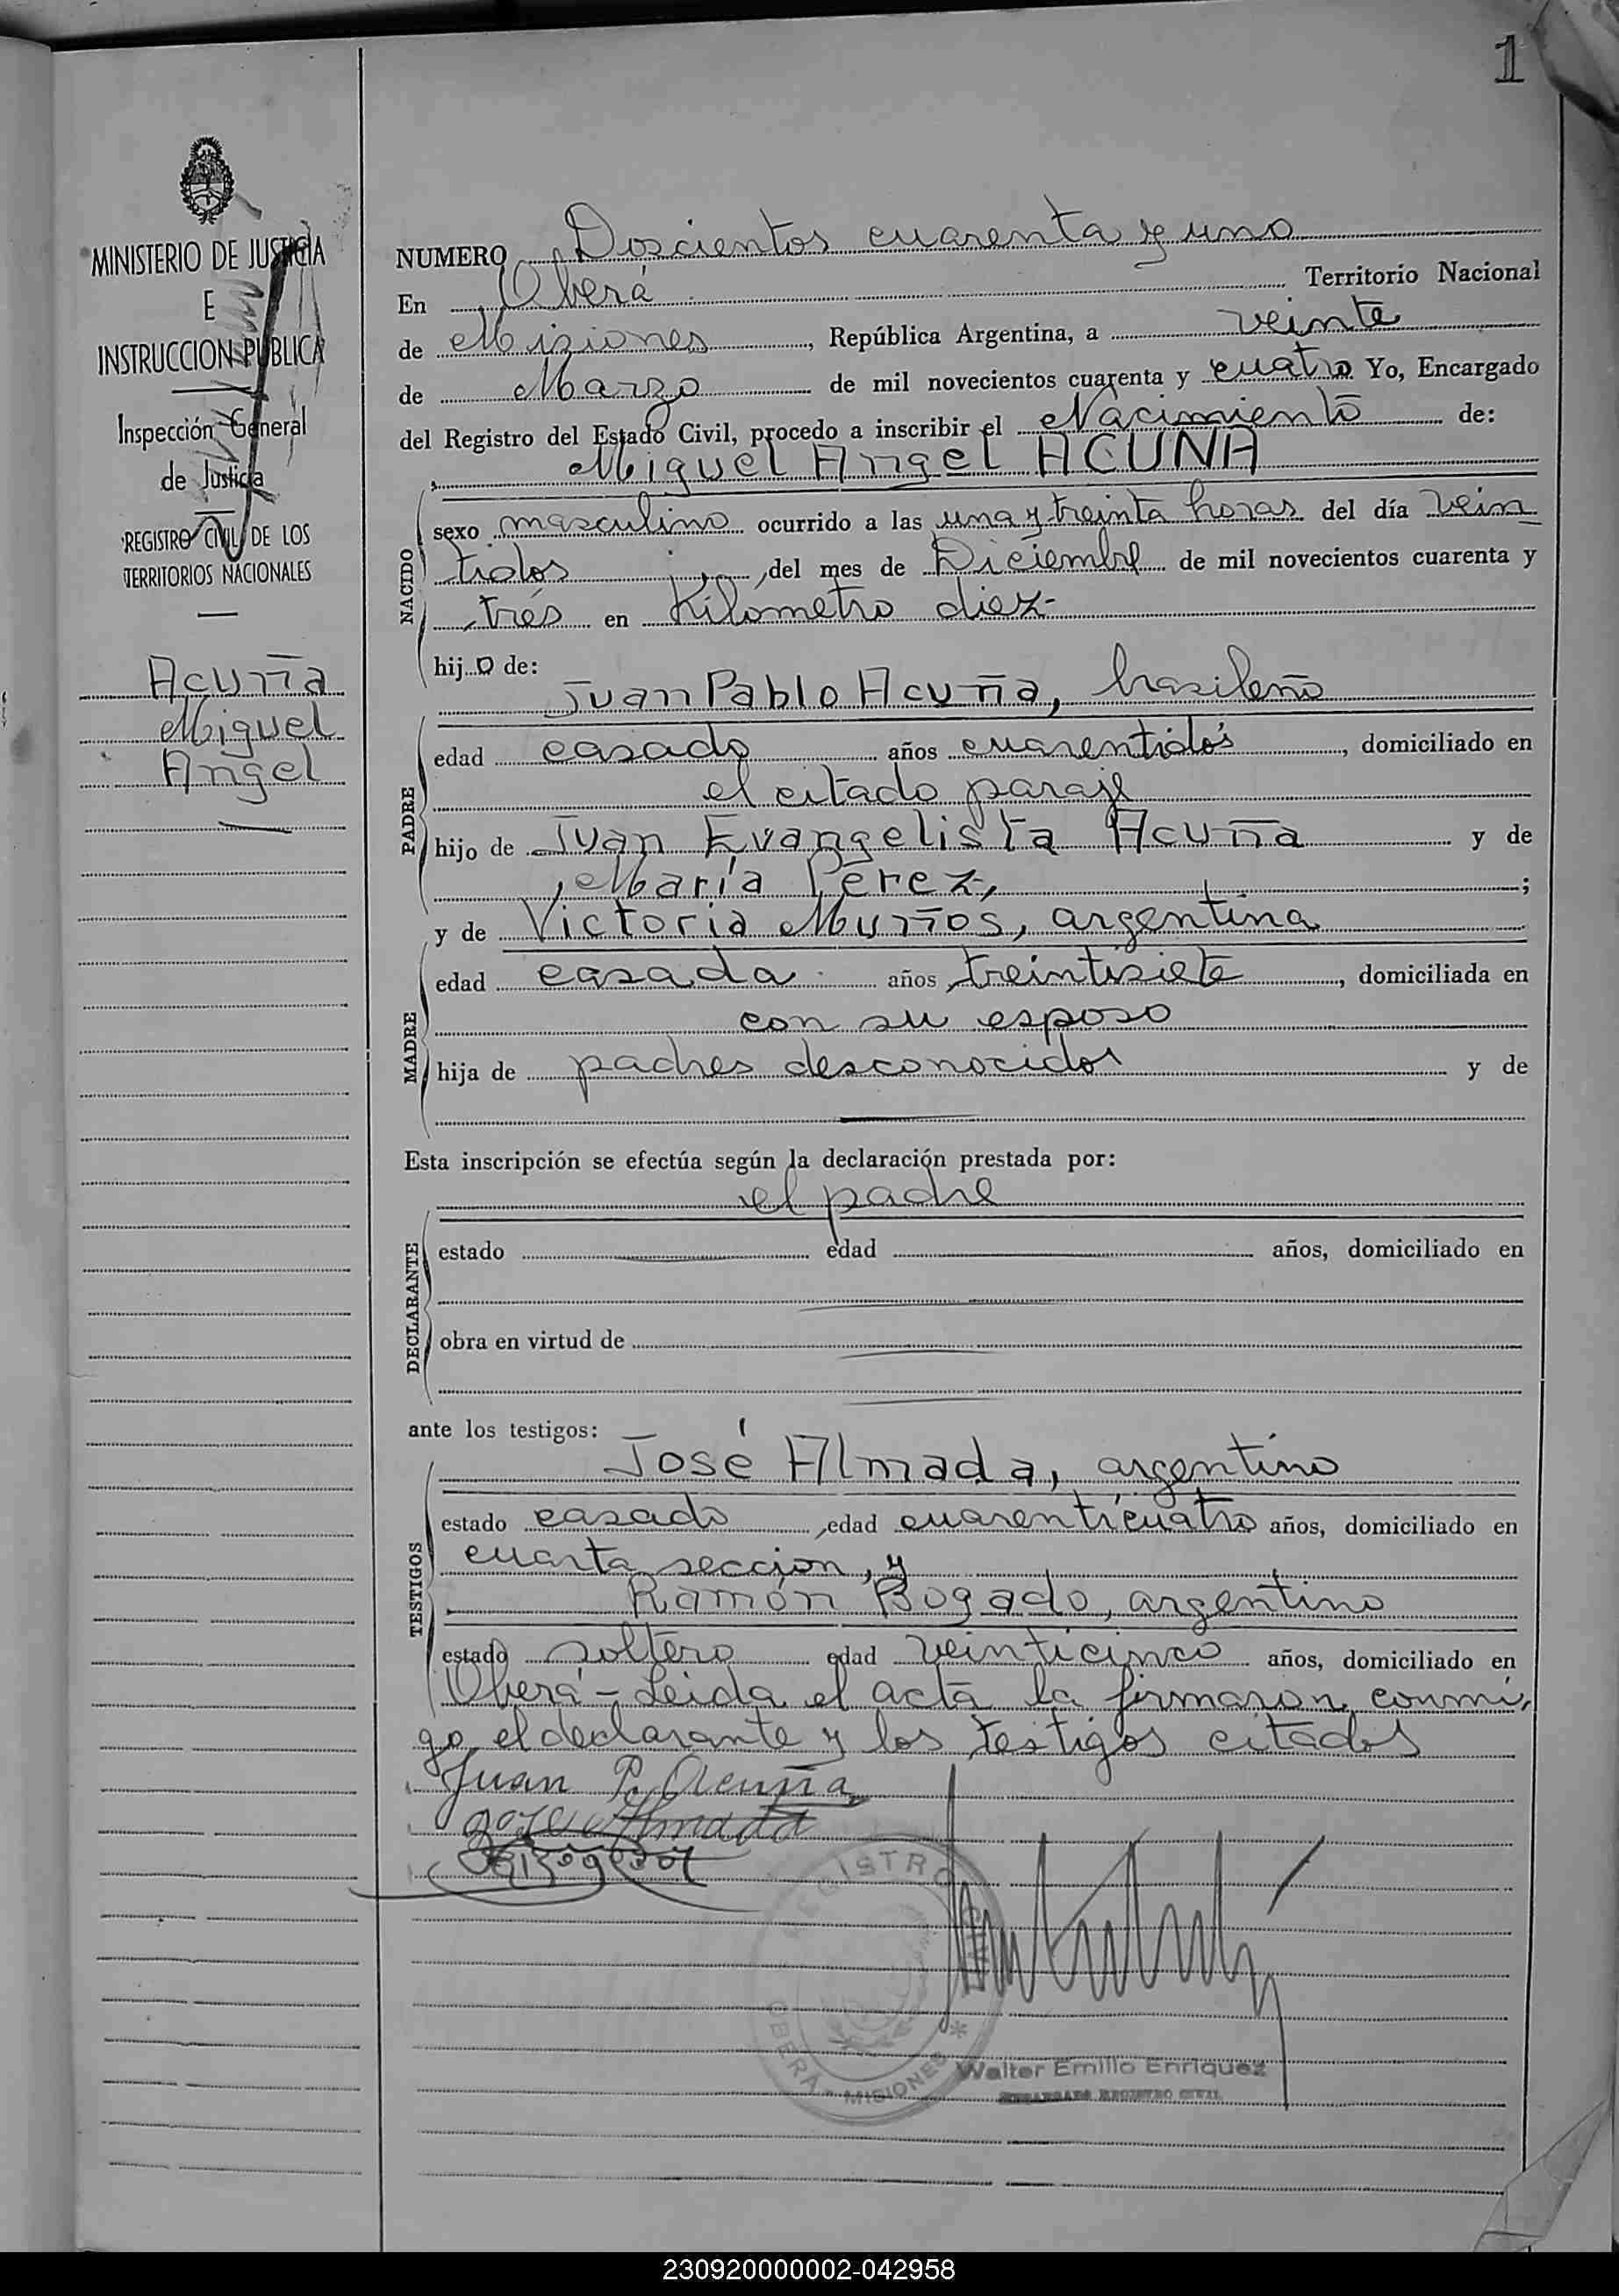 1
MINISTERIO DE JUSTICIA
E
INSTRUCCION PUBLICA
Inspección General
de Justicia
REGISTRO CIVIL DE LOS
TERRITORIOS NACIONALES
Acuña
Miguel
Angel
NUMERO Doscientos cuarenta y uno
En Oberá Territorio Nacional
de Misiones, República Argentina, a veinte
de Marzo de mil novecientos cuarenta y cuatro Yo, Encargado
del Registro del Estado Civil, procedo a inscribir el Nacimiento de:
Miguel Angel ACUÑA
NACIDO
sexo masculino ocurrido a las una y treinta horas del día vein
tidos, del mes de Diciembre de mil novecientos cuarenta y
trés en Kilómetro diez-
hijo de:
Juan Pablo Acuña, brasileño
PADRE
edad casado años cuarentidós, domiciliado en
el citado paraje
hijo de Juan Evangelista Acuña y de
María Pérez, ;
y de Victoria Muños, argentina
MADRE
edad casada años treintisiete, domiciliada en
con su esposo
hija de padres desconocidos y de
Esta inscripción se efectúa según la declaración prestada por:
el padre
DECLARANTE
estado edad años, domiciliado en
obra en virtud de
ante los testigos:
José Almada, argentino
TESTIGOS
estado casado, edad cuarenticuatro años, domiciliado en
cuarta seccion, y
Ramón Bogado, argentino
estado soltero edad veinticinco años, domiciliado en
Oberá - Leida el acta la firmaron conmi,
go, el declarante y los testigos citados
Juan P. Acuña
Jose Almada
REGISTRO CIVIL
OBERÁ - MISIONES
Walter Emilio Enriquez
ENCARGADO REGISTRO CIVIL
230920000002-042958